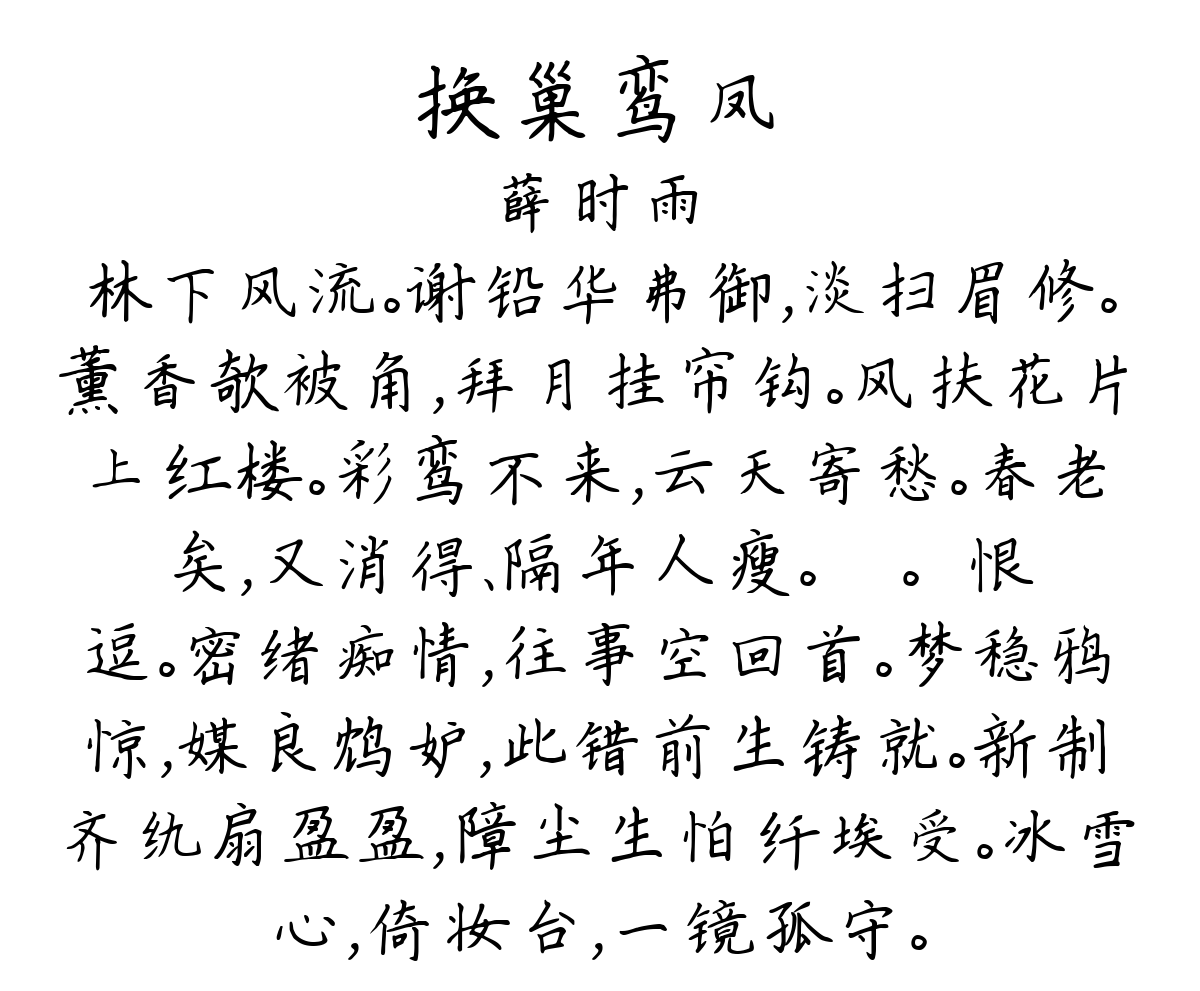 换巢鸾凤
薛时雨
林下风流。谢铅华弗御,淡扫眉修。
薰香欹被角,拜月挂帘钩。风扶花片
上红楼。彩鸾不来,云天寄愁。春老
矣,又消得、隔年人瘦。 。恨
逗。密绪痴情,往事空回首。梦稳鸦
惊,媒良鸩妒,此错前生铸就。新制
齐纨扇盈盈,障尘生怕纤埃受。冰雪
心,倚妆台,一镜孤守。